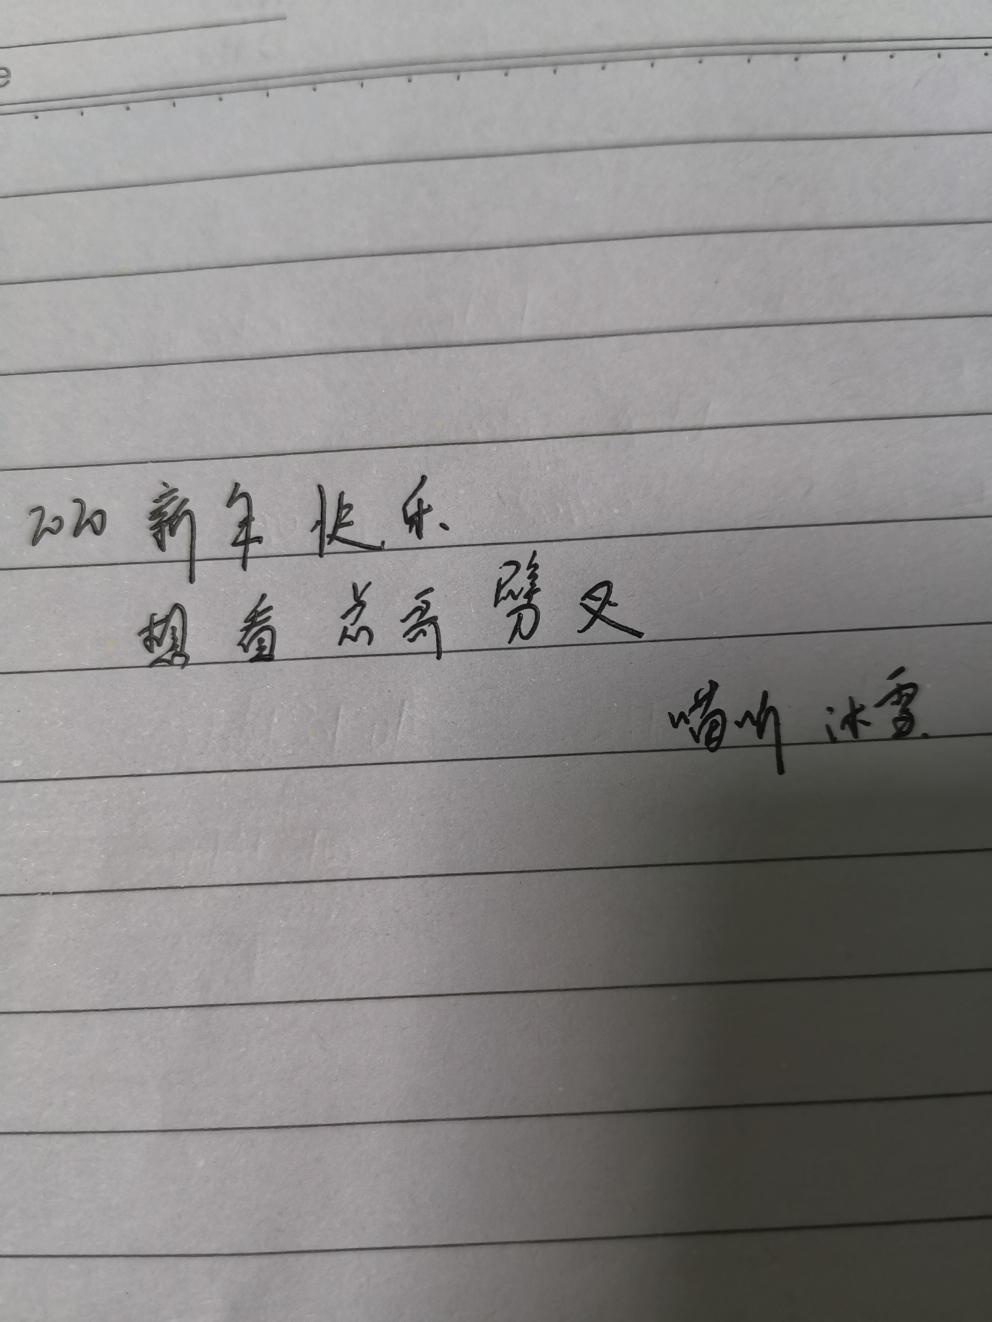 e
2020 新年快乐
想看总哥劈叉
喵听 冰雪